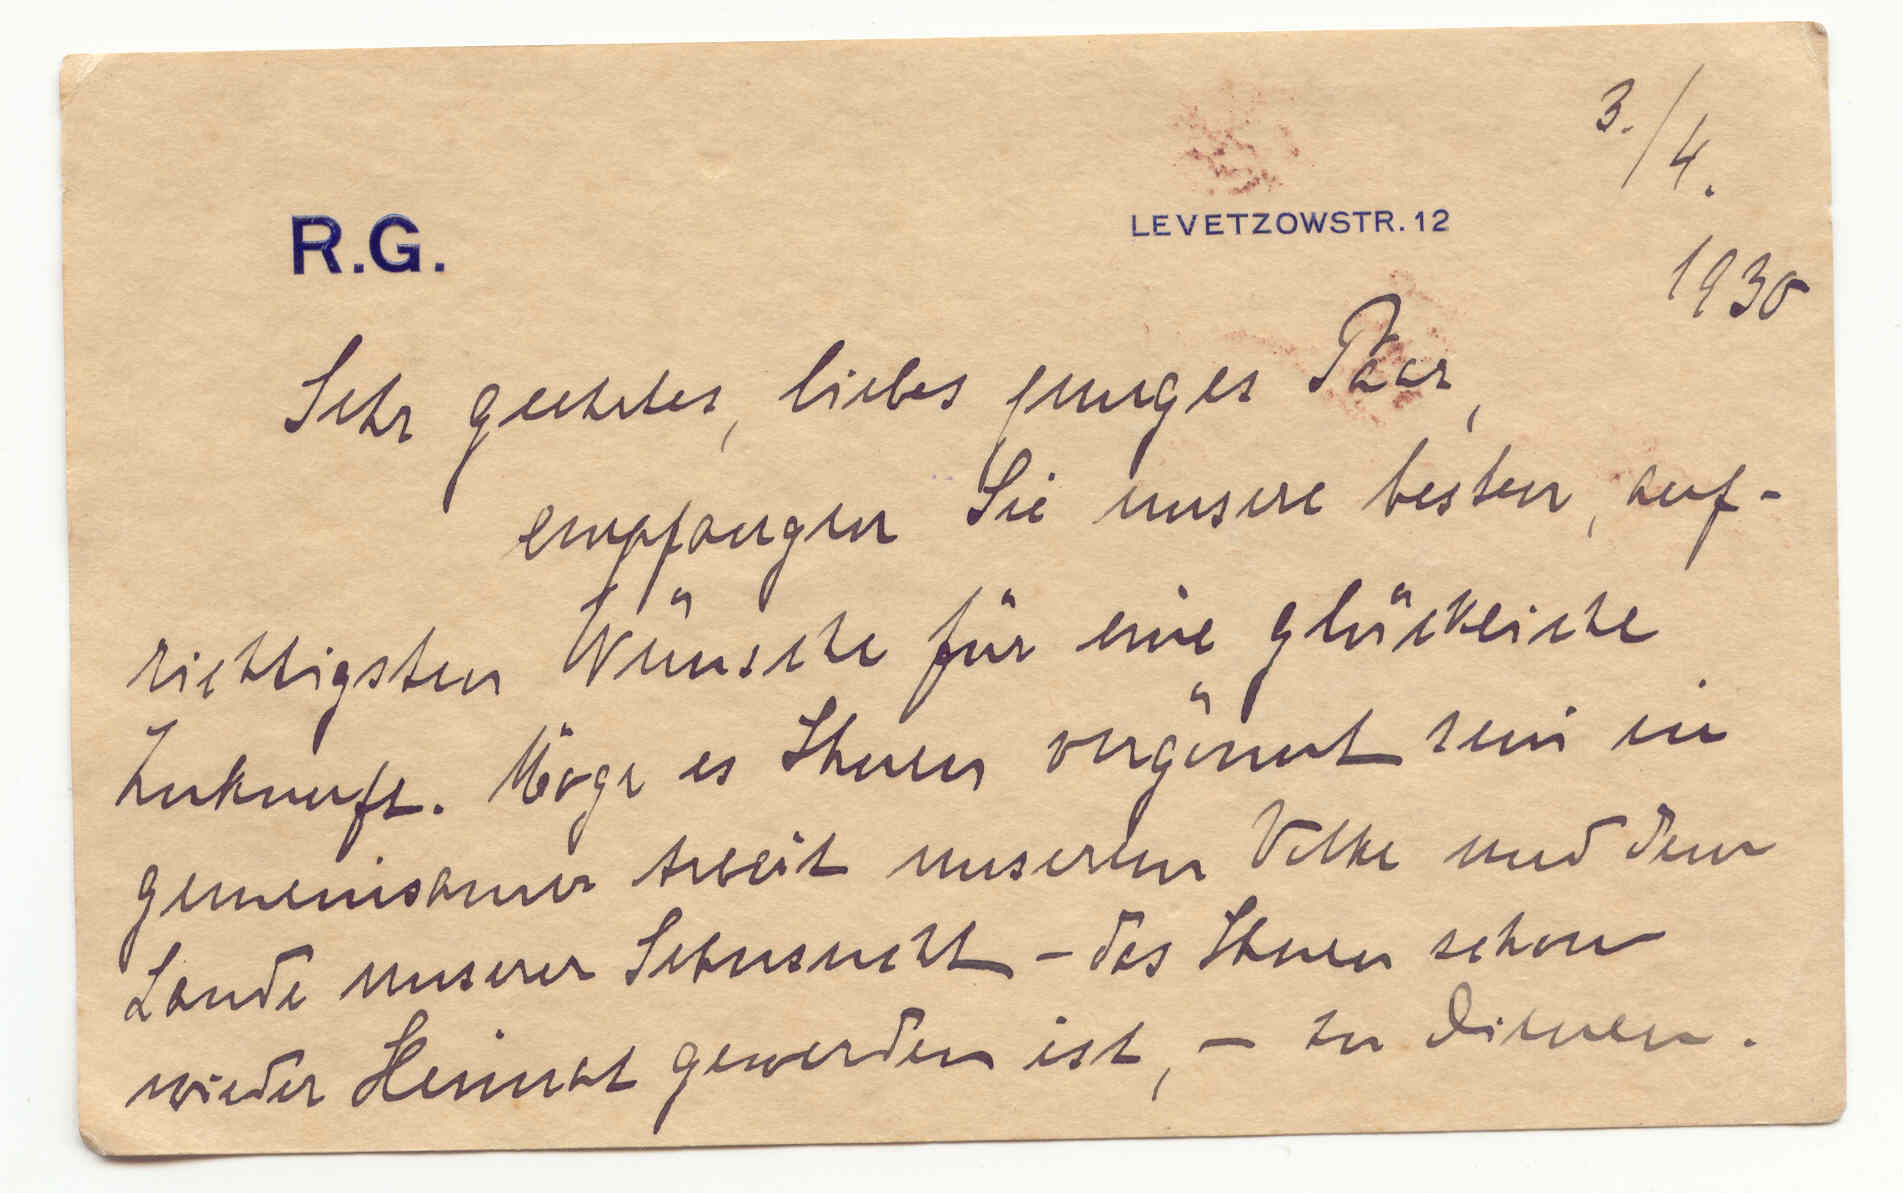 3./4.
1930
R.G.
LEVETZOWSTR. 12
Sehr geehrtes, liebes junges Paar,
empfangen Sie unsere besten, auf-
richtigsten Wünsche für eine glückliche
Zukunft. Möge es Ihnen vergönnt sein in
gemeinsamer Arbeit unserem Volke und dem
Lande unserer Sehnsucht – das Ihnen schon
wieder Heimat geworden ist, – zu dienen.